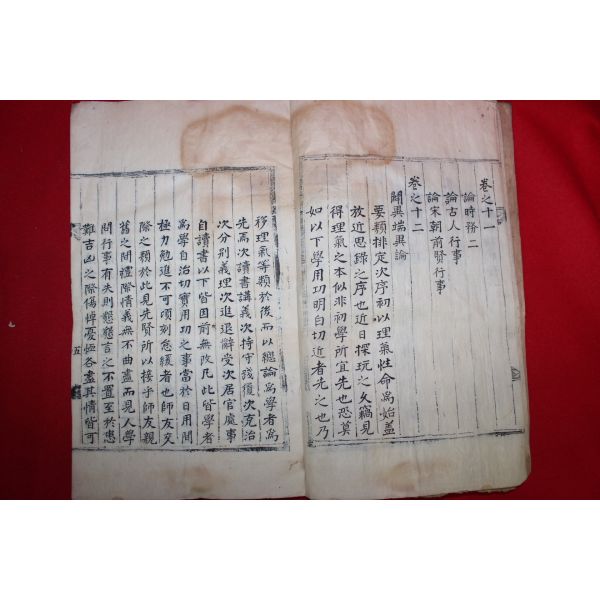 卷之十一
論時務二
論古人行事
論宋朝前賢行事
卷之十二
闢異端異論
要類排定次序初以理氣性命爲始盖
放近思錄之序也近日探玩之久竊見
得理氣之本似非初學所宜先也恐莫
如以下學用功明白切近者先之也乃
移理氣等類於後而以總論爲學者爲
先爲次讀書講義次持守踐履次克治
次分別義理次進退辭受次居官處事
自讀書以下皆因前無改凡此皆學者
爲學自治切實用功之事當於日用間
極力勉進不可頃刻怠緩者也師友交
際之類於此見先賢所以接乎師友親
舊之間禮際情義無不曲盡而見人學
問行事有失則懇懇言之不置至於患
難吉凶之際傷悼憂恤各盡其情皆可
五